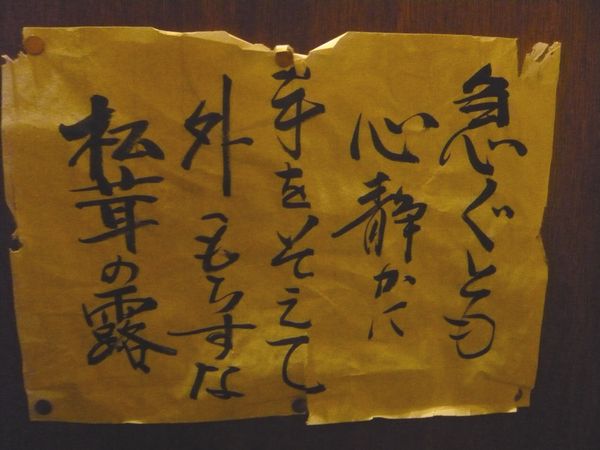 急ぐとも
心静かに
手をそえて
外へもらすな
松茸の露